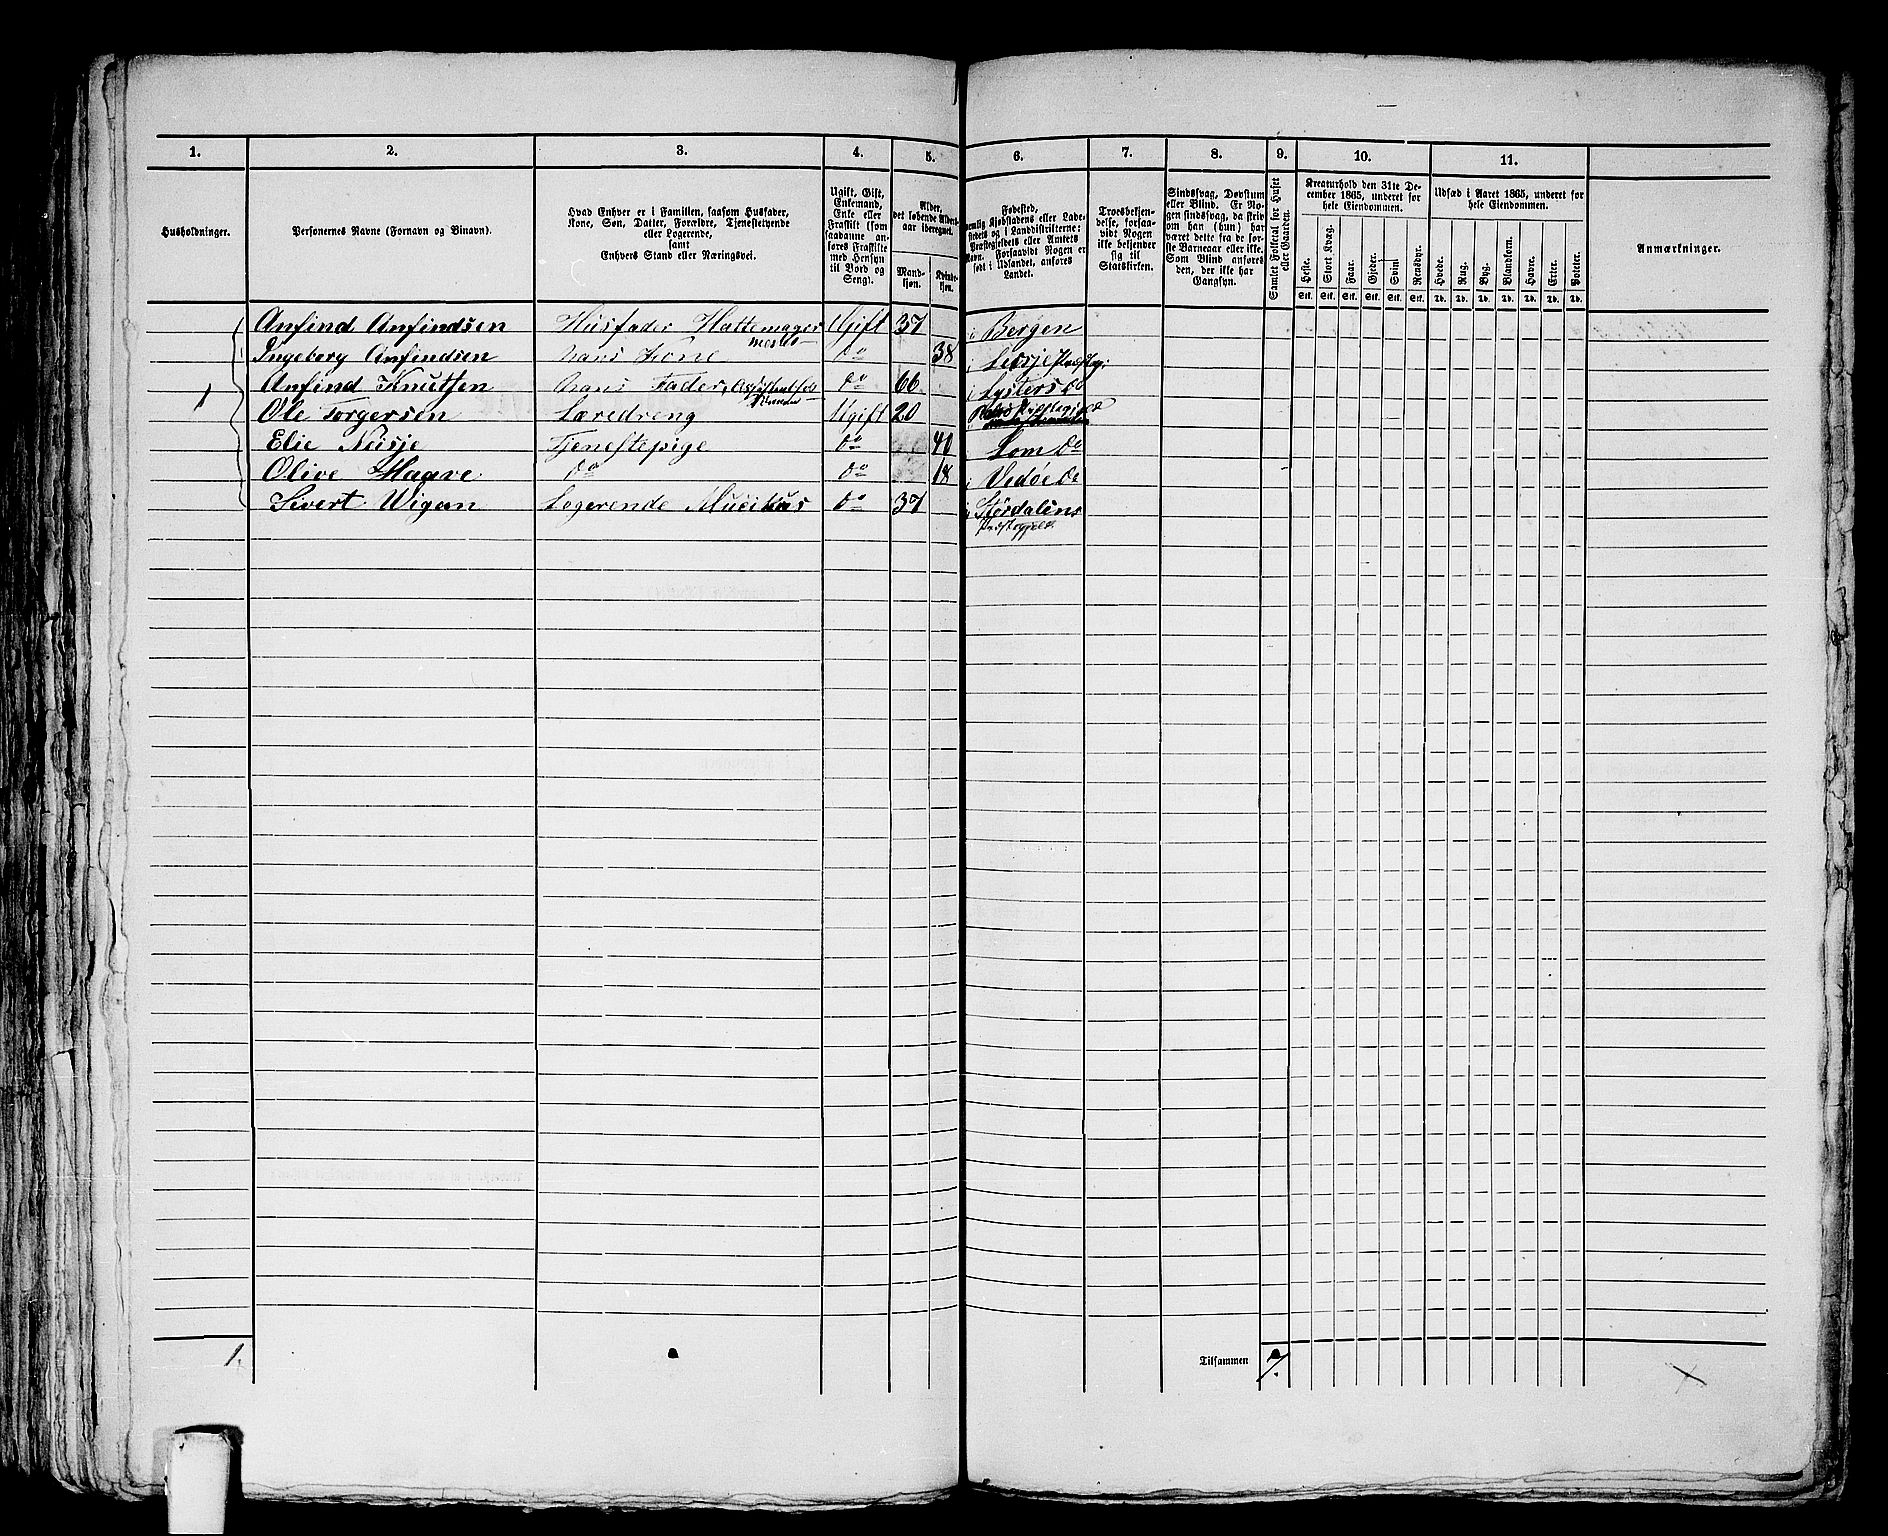 1. 2. 3. 4. 5. 6. 7. 8. 9. 10. 11.
Husholdninger.
Personernes Navne (Fornavn og Binavn).
Hvad Enhver er i Familien, saasom Husfader,
Kone, Søn, Datter, Forældre, Tjenestetyende
eller Logerende,
samt
Enhvers Stand eller Næringsvei.
Ugift, Gift,
Enkemand,
Enke eller
Fraskilt (som
saadanne an-
føres Fraskilte
med Hensyn
til Bord og
Seng).
Alder,
det løbende Alders-
aar iberegnet.
Mand-
kjøn.
Kvinde-
kjøn.
Fødested,
nemlig Kjøbstadens eller Lade-
stedets og i Landdistrikterne:
Præstegjeldets eller Amtets
Navn. Forsaavidt Nogen er
født i Udlandet, anføres
Landet.
Troesbekjen-
delse, forsaa-
vidt Nogen
ikke bekjender
sig til
Statskirken.
Sindssvag, Døvstum
eller Blind. Er No-
gen sindssvag, da skriv
om han (hun) har
været dette fra de før-
ste Barneaar eller ikke.
Som Blind anføres
den, der ikke har
Gangsyn.
Samlet Folketal for Huset
eller Gaarden.
Kreaturhold den 31te De-
cember 1865, underet for
hele Eiendommen.
Heste. Stort Kvæg. Faar. Gjeder. Svin. Rensdyr.
Stk. Stk. Stk. Stk. Stk. Stk.
Udsæd i Aaret 1865, underet for
hele Eiendommen.
Hvede. Rug. Byg. Blandkorn. Havre. Erter. Poteter.
Td. Td. Td. Td. Td. Td. Td.
Anmærkninger.
Anfind Anfindsen Husfader Hattemager Gift 37 i Bergen
Ingeborg Anfindsen hans Kone do 38 i Lesje Præstegj:
1 Anfind Knutsen hans Fader, do 66 i Lysters do
Ole Torgersen Læredreng Ugift 20
Elie Neisje Tjenestepige do 40 i Lom do
Olive Haave do do 18 i Vedøe do
Sivert Wigan Logerende Musikus do 37 i Størdalens
Præstegjeld
1. Tilsammen 7.